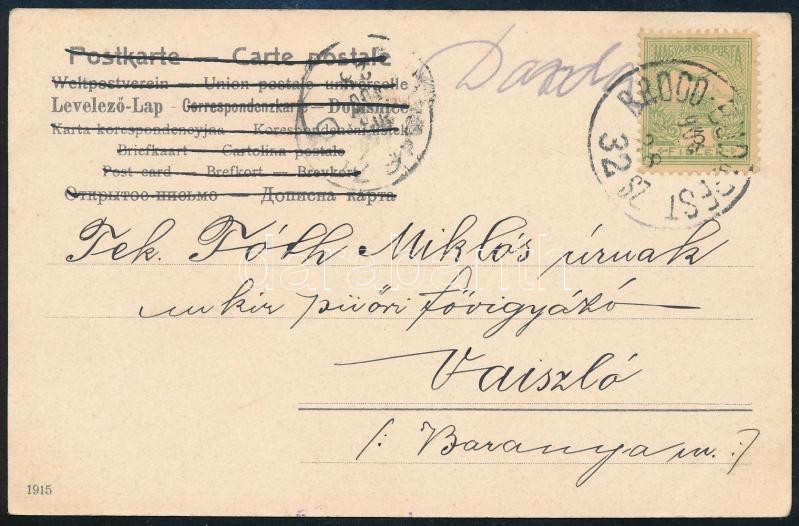 Postkarte — Carte postale
Weltpostverein — Union postale universelle
Levelező-Lap — Correspondenzkarte — Dopisnice
Karta korespondencyjna — Korespondenční lístek
Briefkaart — Cartolina postale
Post card — Brefkort — Brevkort
Открытое письмо — Дописна карта
MAGYAR KIR. POSTA
32
Tek. Tóth Miklós úrnak
m kir fővigyázó
Vaiszló
/: Baranya m. :/
darabanth
1915